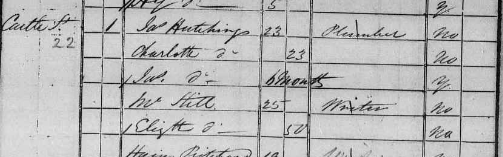 5 y
Castle St 1 Jas Hutchings 23 Plumber No
22 Charlotte Do 23 No
Jas. Do 6 Months y
Wm Still 25 Writer No
Elizth Do 50 No